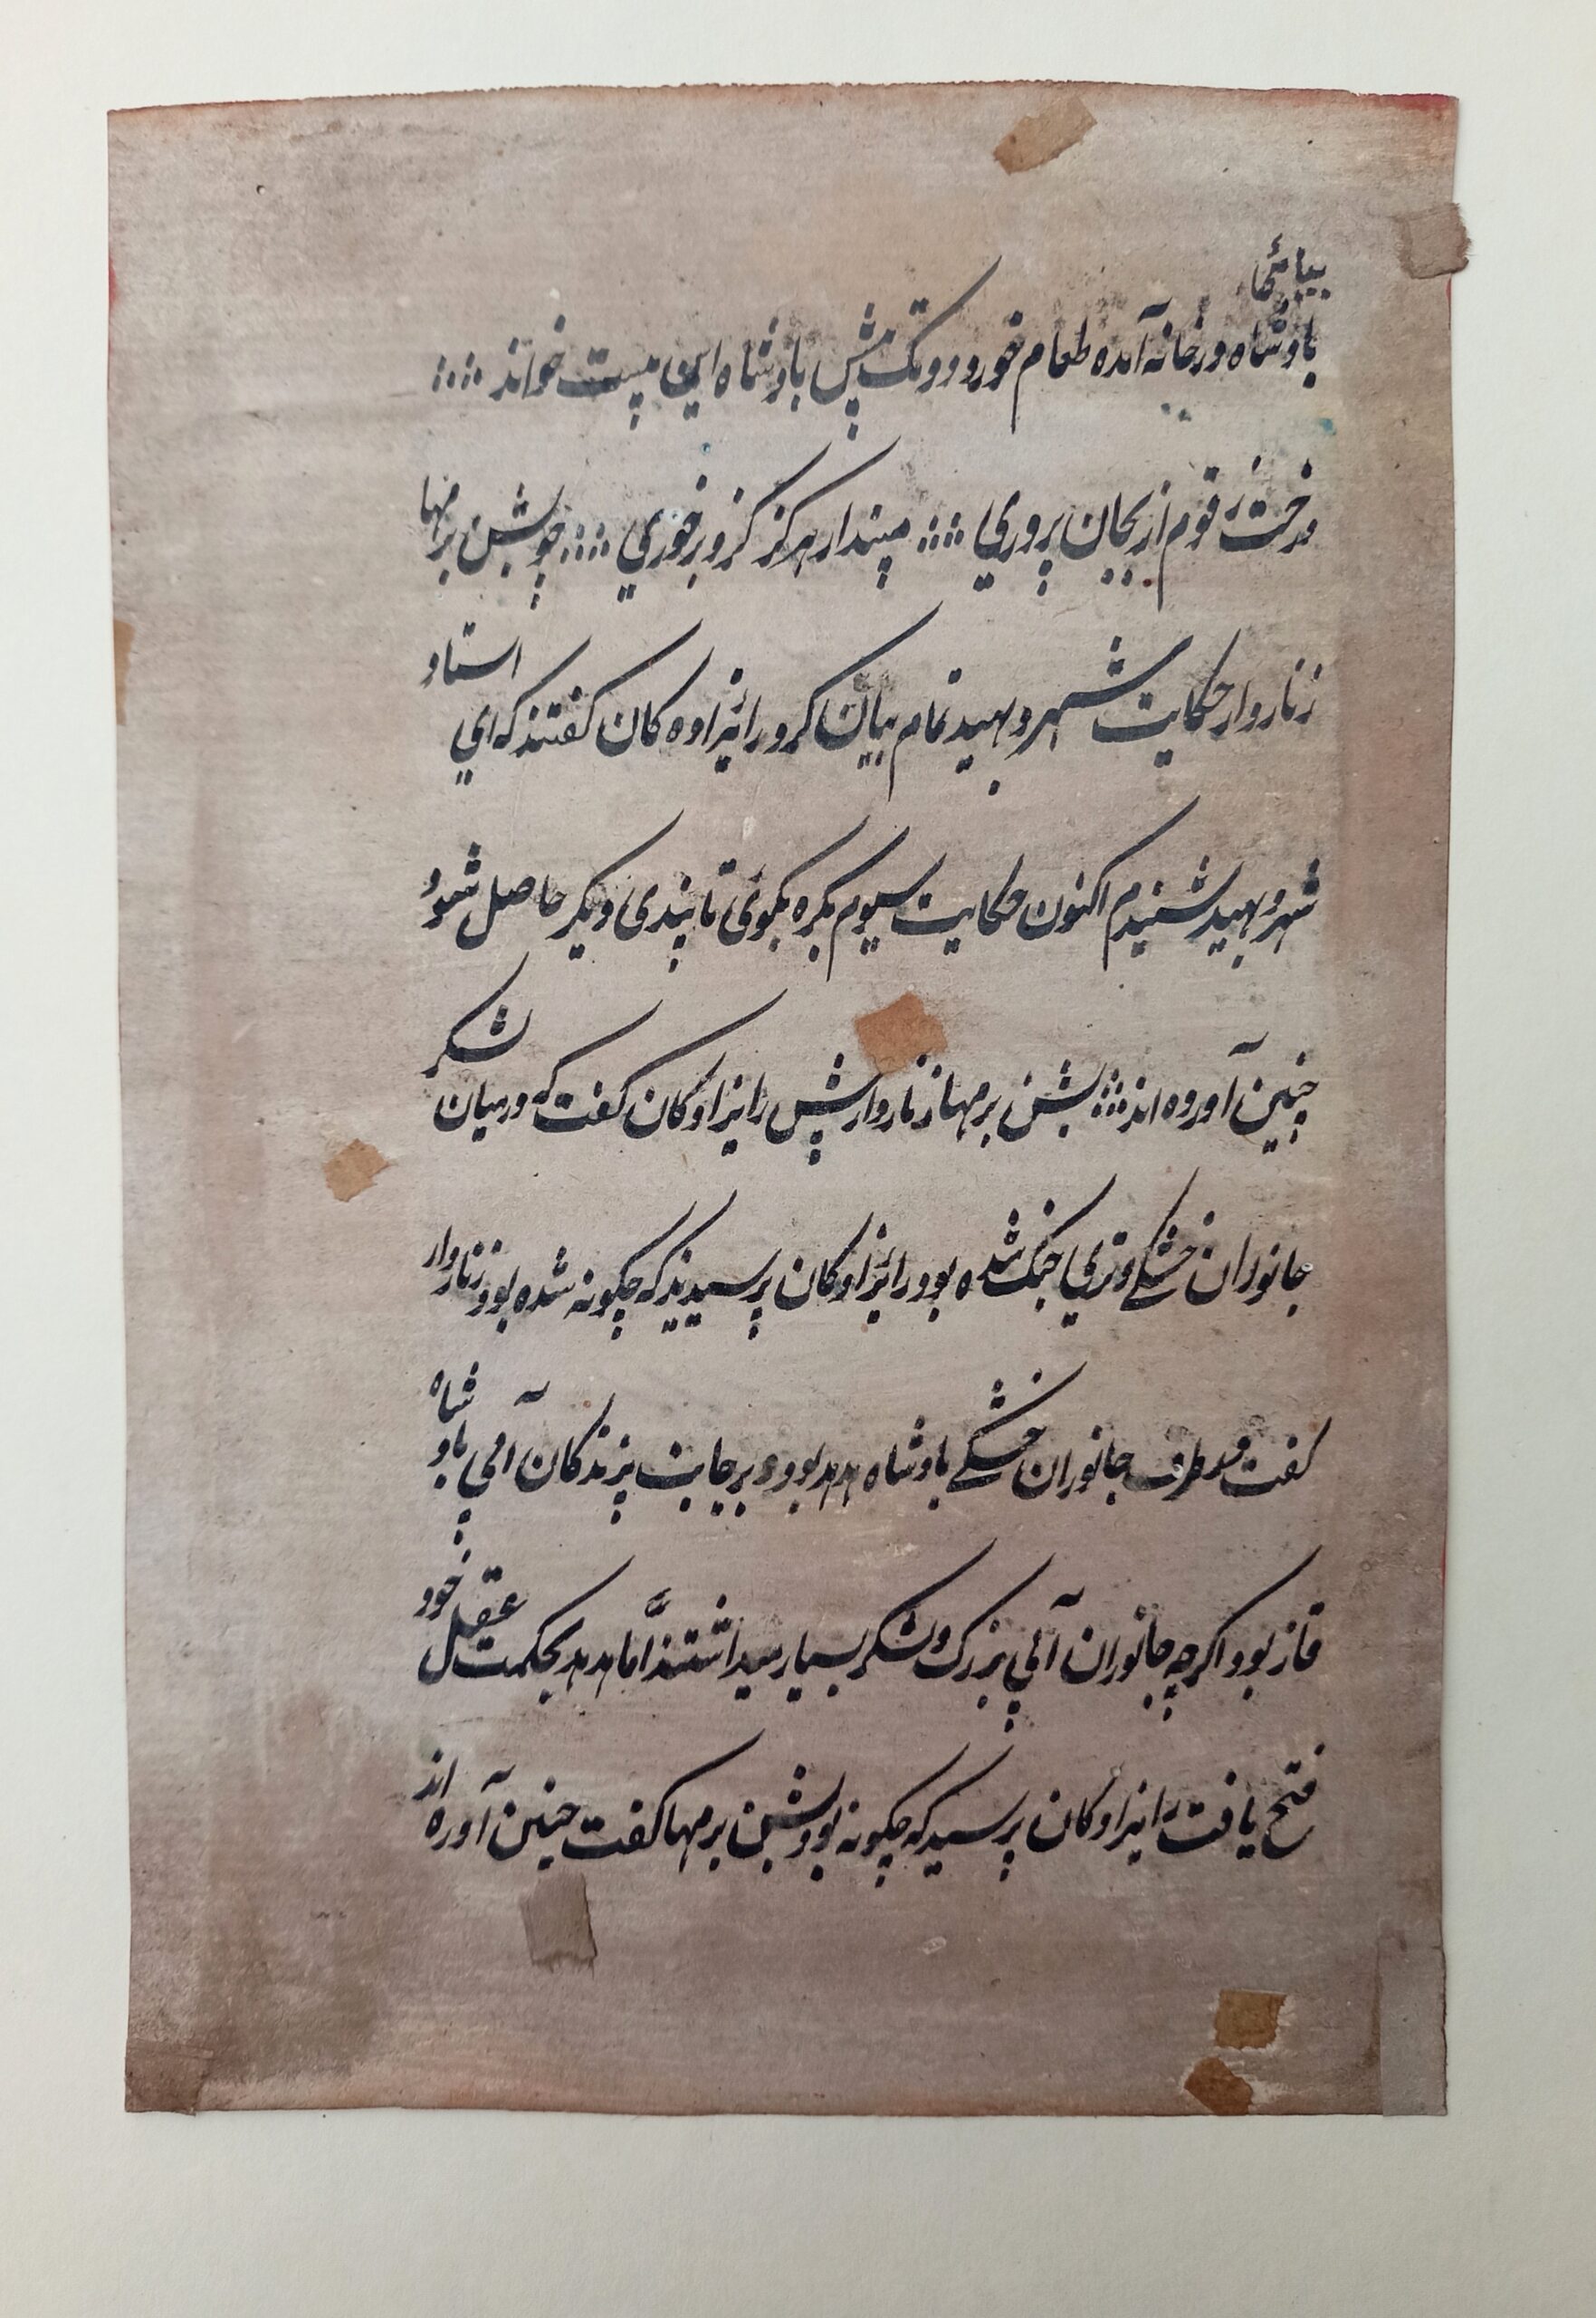 بیامئی
بادشاه در خانه آمده طعام خورد و دمنک پیش بادشاه این بیت خواند
درخت قوم از بجان پروری پیندار هرکز کزو برخوری چو بشن برمها
زناروار حکایت شهر و بهید تمام بیان کرد رائزاده کان کفتند که ای استاد
شهر و بهید شنیدم اکنون حکایت سیوم بکره بکوی تا پندی دیکر حاصل شود
چنین آورده اند بشن برمها زناروار پیش رایزادکان کفت که درمیان لشکر
جانوران خشکی و تری جنک شده بود رائزادکان پرسیدند که چکونه شده بود زناروار
کفت در طرف جانوران خشکی بادشاه هدهد بود و بر جانب پرندکان آبی بادشاه
قاز بود اکرچه جانوران آبی بزرک و لشکر بسیار میداشتند اما هدهد بحکمت عقل خود
فتح یافت رایزادکان پرسید که چکونه بود بشن برمها کفت چنین آورده اند